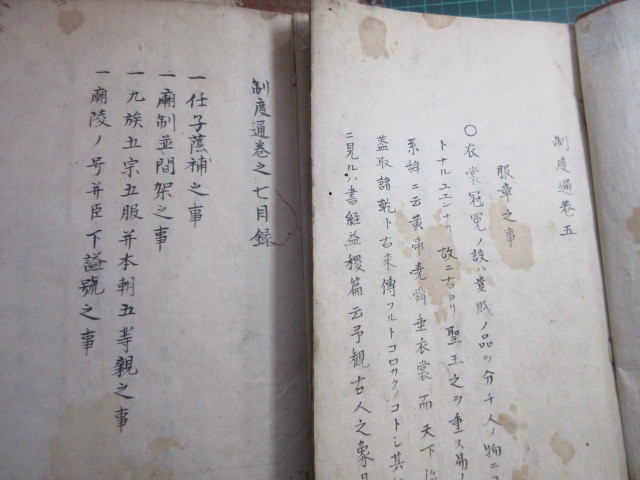 制度通巻五
服章之事
〇衣裳冠冕ノ設ハ貴賤ノ品ヲ分チ人ノ物ニコ
トナルユエンナリ故ニ古ヨリ聖王之ヲ重ス易ノ
系辞ニ云黄帝堯舜垂衣裳而天下
蓋取諸乾ト古来傳フルトコロカクノコトシ其
ニ見ルハ書経益稷篇云予観古人之象日
制度通巻之七目録
一任子蔭補之事
一廟制並間架之事
一九族五宗五服并本朝五等親之事
一廟陵ノ号并臣下謚號之事